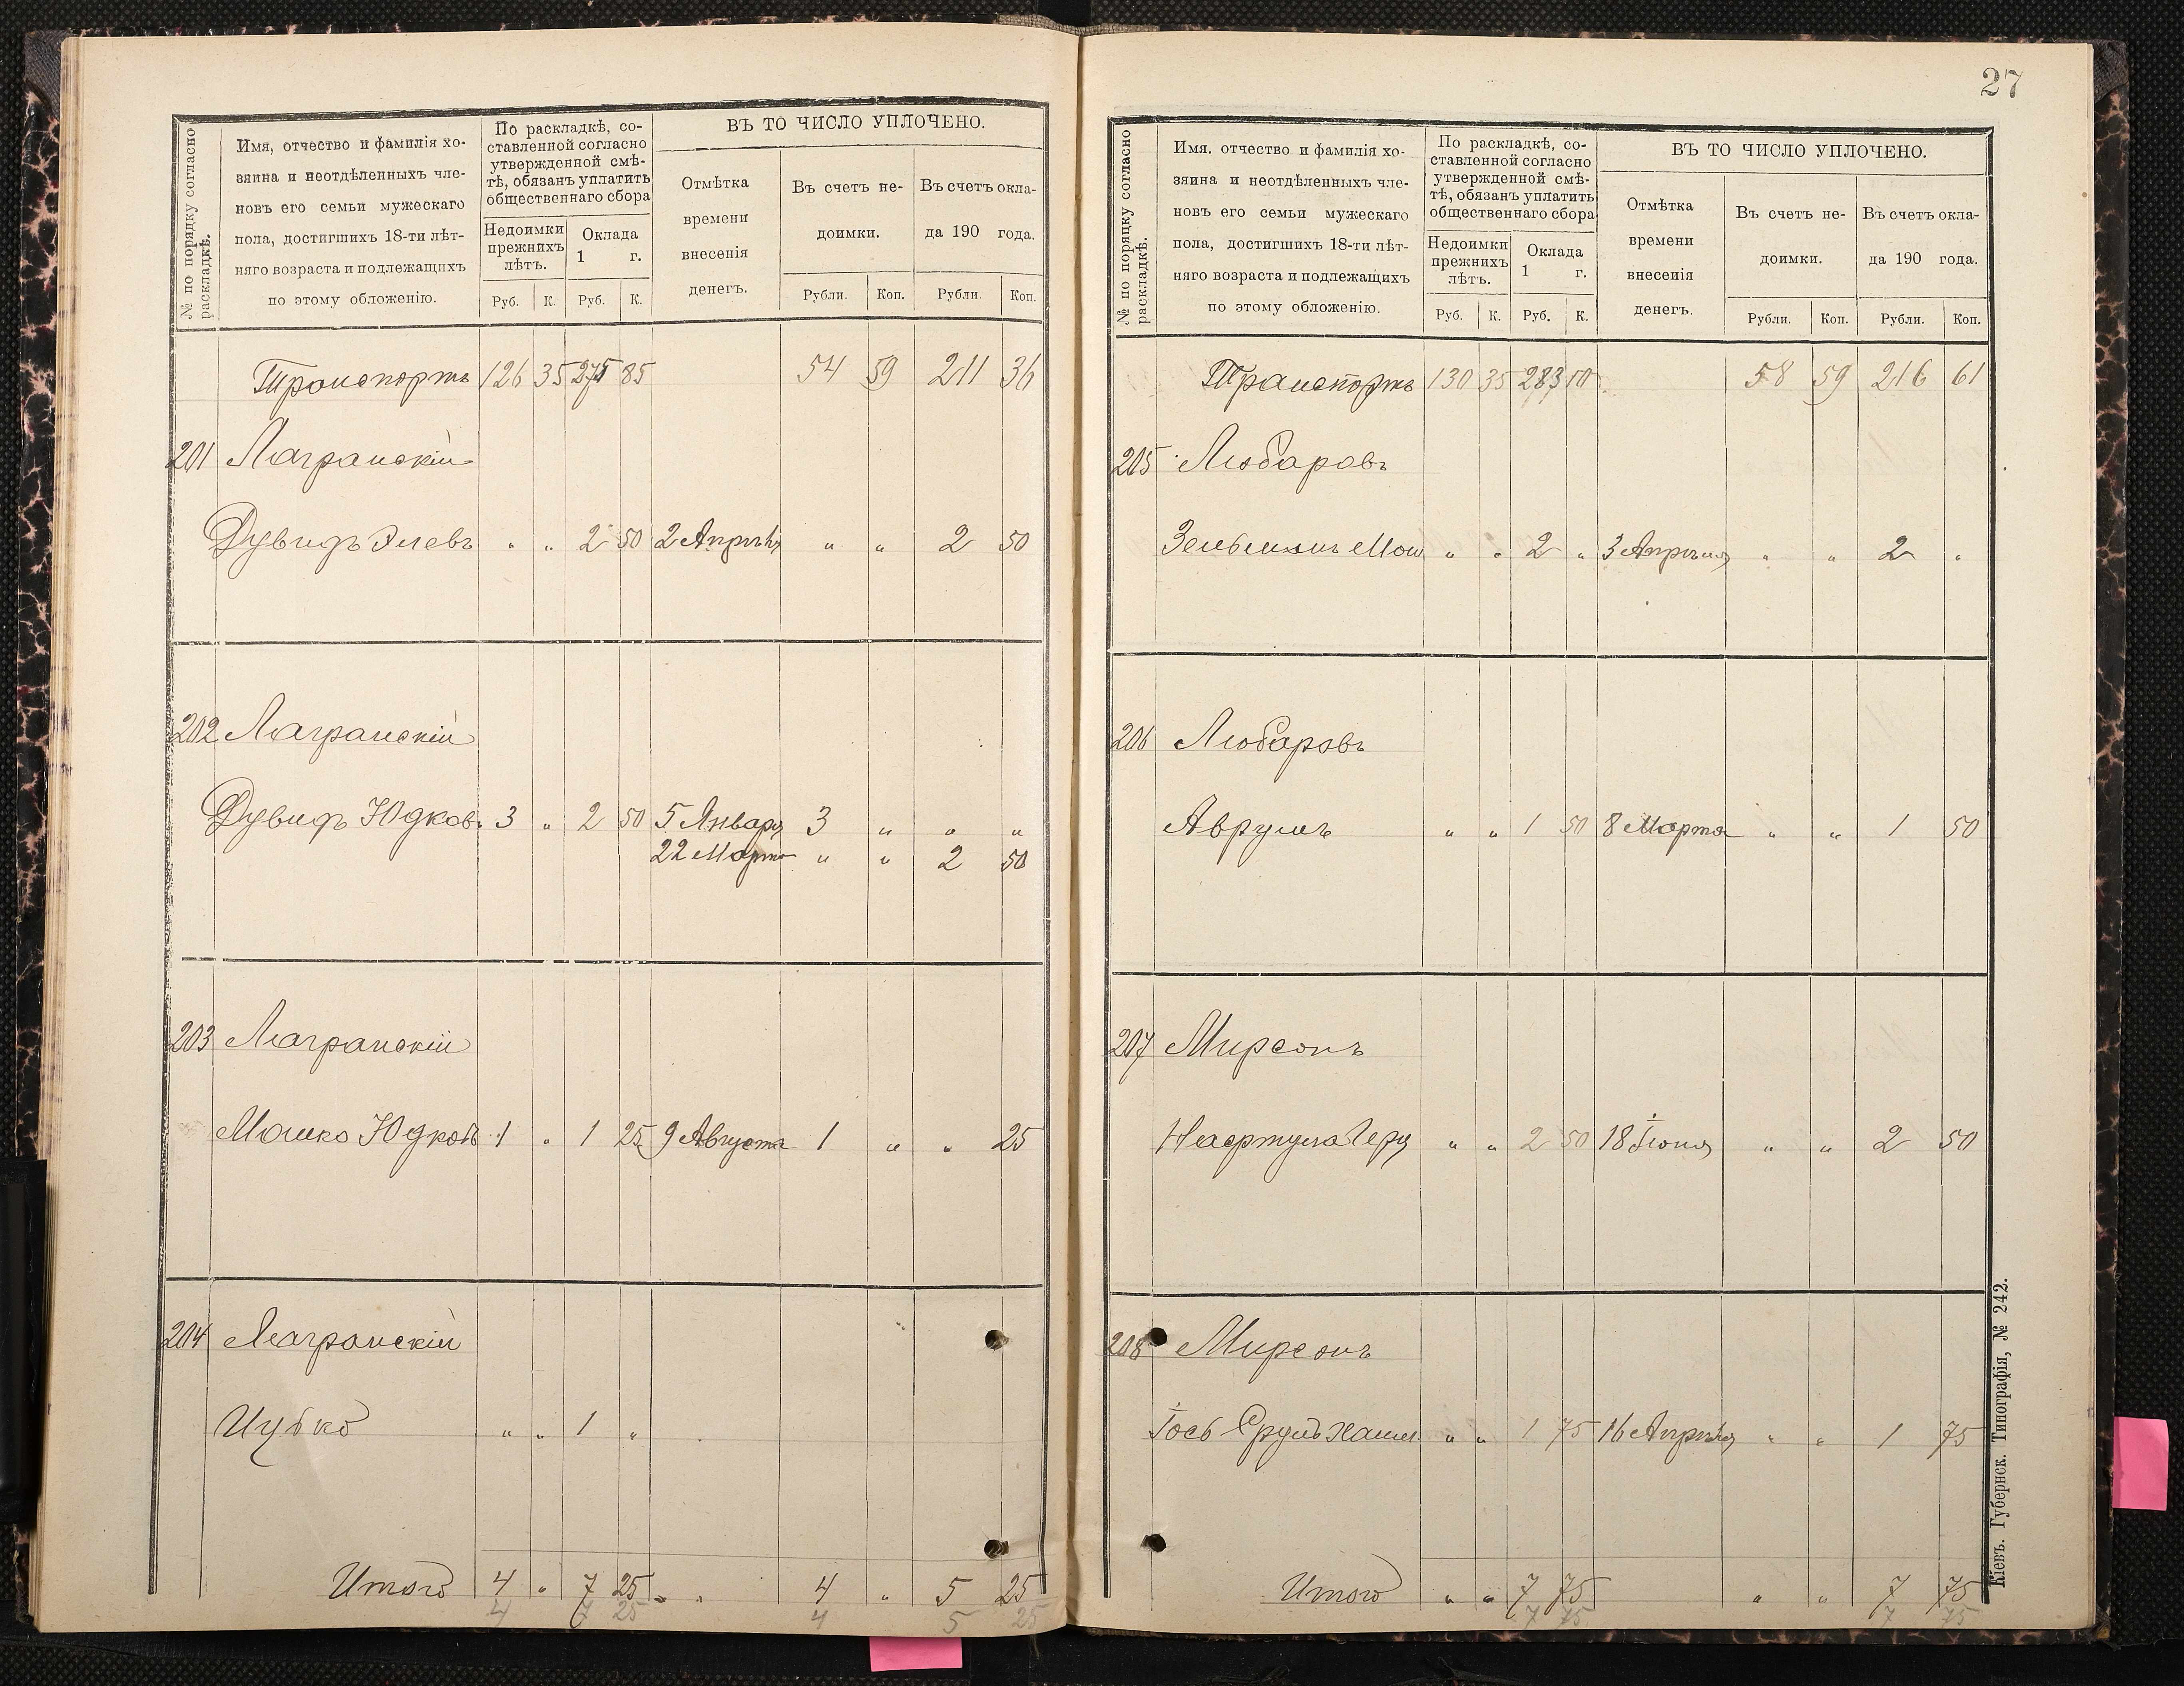 № по порядку согласно раскладкѣ.
Имя, отчество и фамилія хо-
зяина и неотдѣленныхъ чле-
новъ его семьи мужескаго
пола, достигшихъ 18-ти лѣт-
няго возраста и подлежащихъ
по этому обложенію.
По раскладкѣ, со-
ставленной согласно
утвержденной смѣ-
тѣ, обязанъ уплатить
общественнаго сбора
Недоимки
прежнихъ
лѣтъ.
Оклада
1 г.
Руб. К. Руб. К.
ВЪ ТО ЧИСЛО УПЛОЧЕНО.
Отмѣтка
времени
внесенія
денегъ.
Въ счетъ не-
доимки.
Въ счетъ окла-
да 190 года.
Рубли. Коп. Рубли. Коп.
Транспортъ 126 35 275 85 54 59 211 36
201 Лагранскій
Дувидъ Элевъ " " 2 50 2 Апрѣля " " 2 50
202 Лагранскій
Дувидъ Юдков. 3 " 2 50 5 Января 3 " " "
22 Марта " " 2 50
203 Лагранскій
Мошко Юдковъ 1 " 1 25 9 Августа 1 " " 25
204 Лагранскій
Ицько " " 1 "
Итого 4 " 7 25 " " 4 " 5 25
4 7 25 4 5 25
27
№ по порядку согласно раскладкѣ.
Имя. отчество и фамилія хо-
зяина и неотдѣленныхъ чле-
новъ его семьи мужескаго
пола, достигшихъ 18-ти лѣт-
няго возраста и подлежащихъ
по этому обложенію.
По раскладкѣ, со-
ставленной согласно
утвержденной смѣ-
тѣ, обязанъ уплатить
общественнаго сбора
Недоимки
прежнихъ
лѣтъ.
Оклада
1 г.
Руб. К. Руб. К.
ВЪ ТО ЧИСЛО УПЛОЧЕНО.
Отмѣтка
времени
внесенія
денегъ.
Въ счетъ не-
доимки.
Въ счетъ окла-
да 190 года.
Рубли. Коп. Рубли. Коп.
Транспортъ 130 35 283 10 58 59 216 61
205 Любаровъ
Зельманъ Мош " " 2 " 3 Апрѣля " " 2 "
206 Любаровъ
Аврумъ " " 1 50 8 Марта " " 1 50
207 Мирсонъ
Нафтула Герц " " 2 50 18 Іюня " " 2 50
208 Мирсонъ
Іось Сруль " " 1 75 16 Апрѣля " " 1 75
Итого " " 7 75 " " 7 75
7 75 7 75
Кіевъ. Губернск. Типографія, № 242.